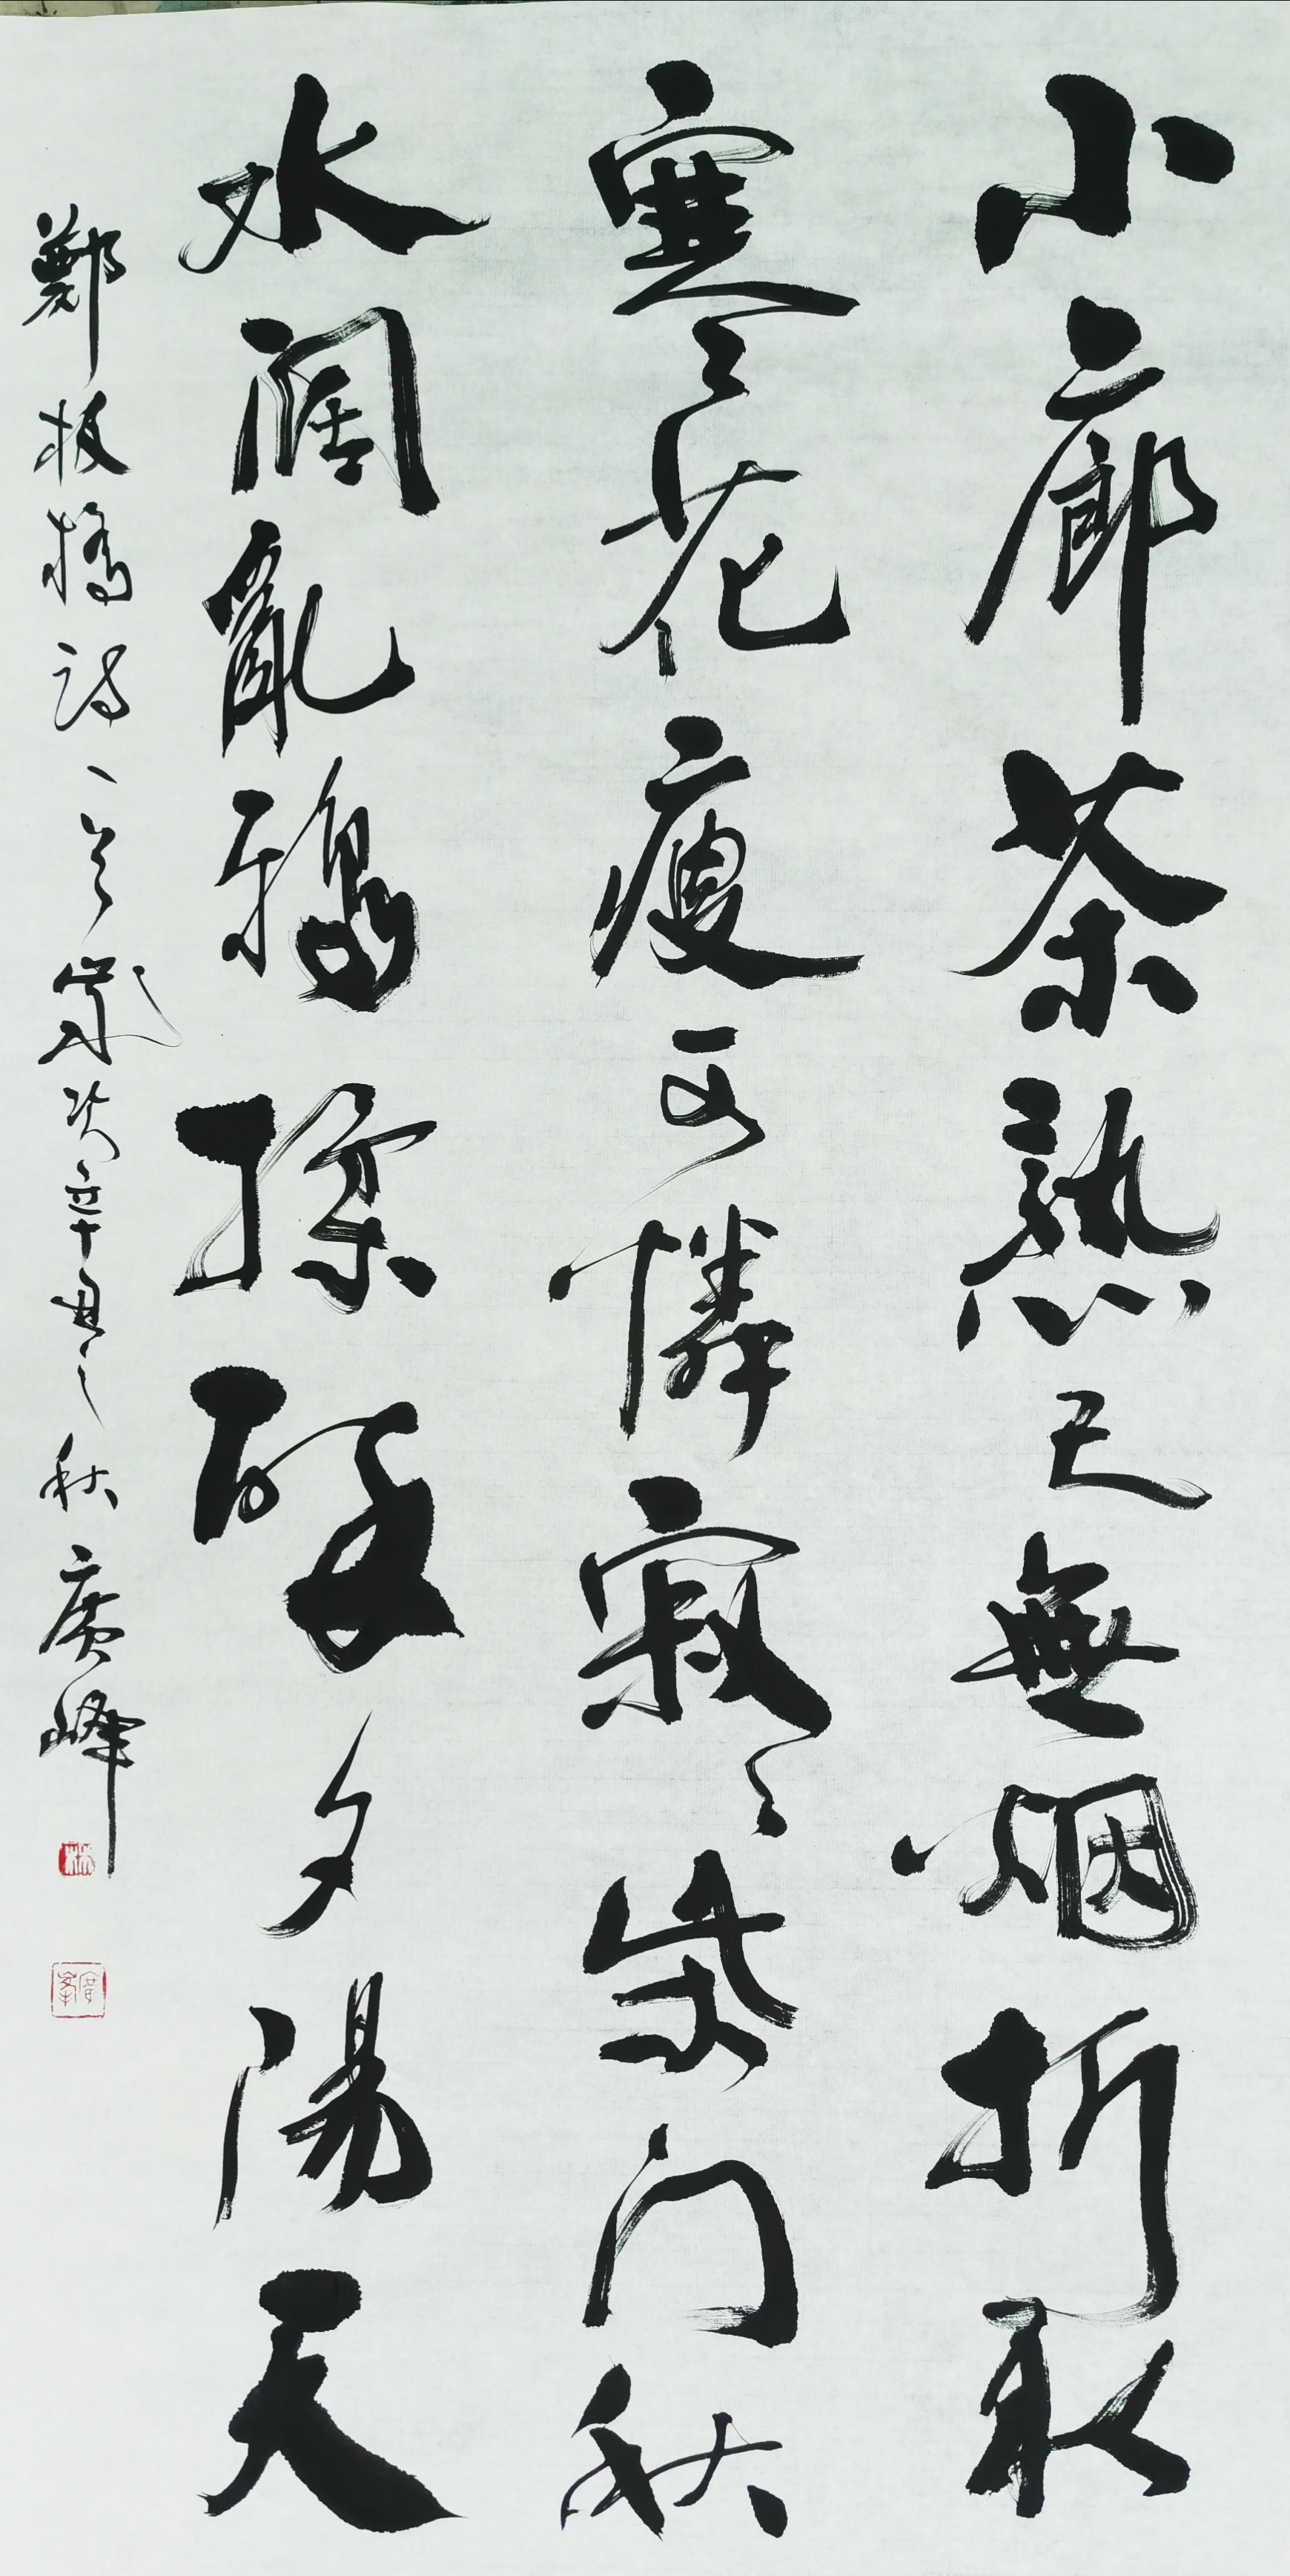 小廊茶熟已無烟折取
寒々花瘦可憐寂々柴门秋
水阔亂鴉揉碎夕陽天
鄭板橋詩一首歲次辛丑之秋廣峰
林